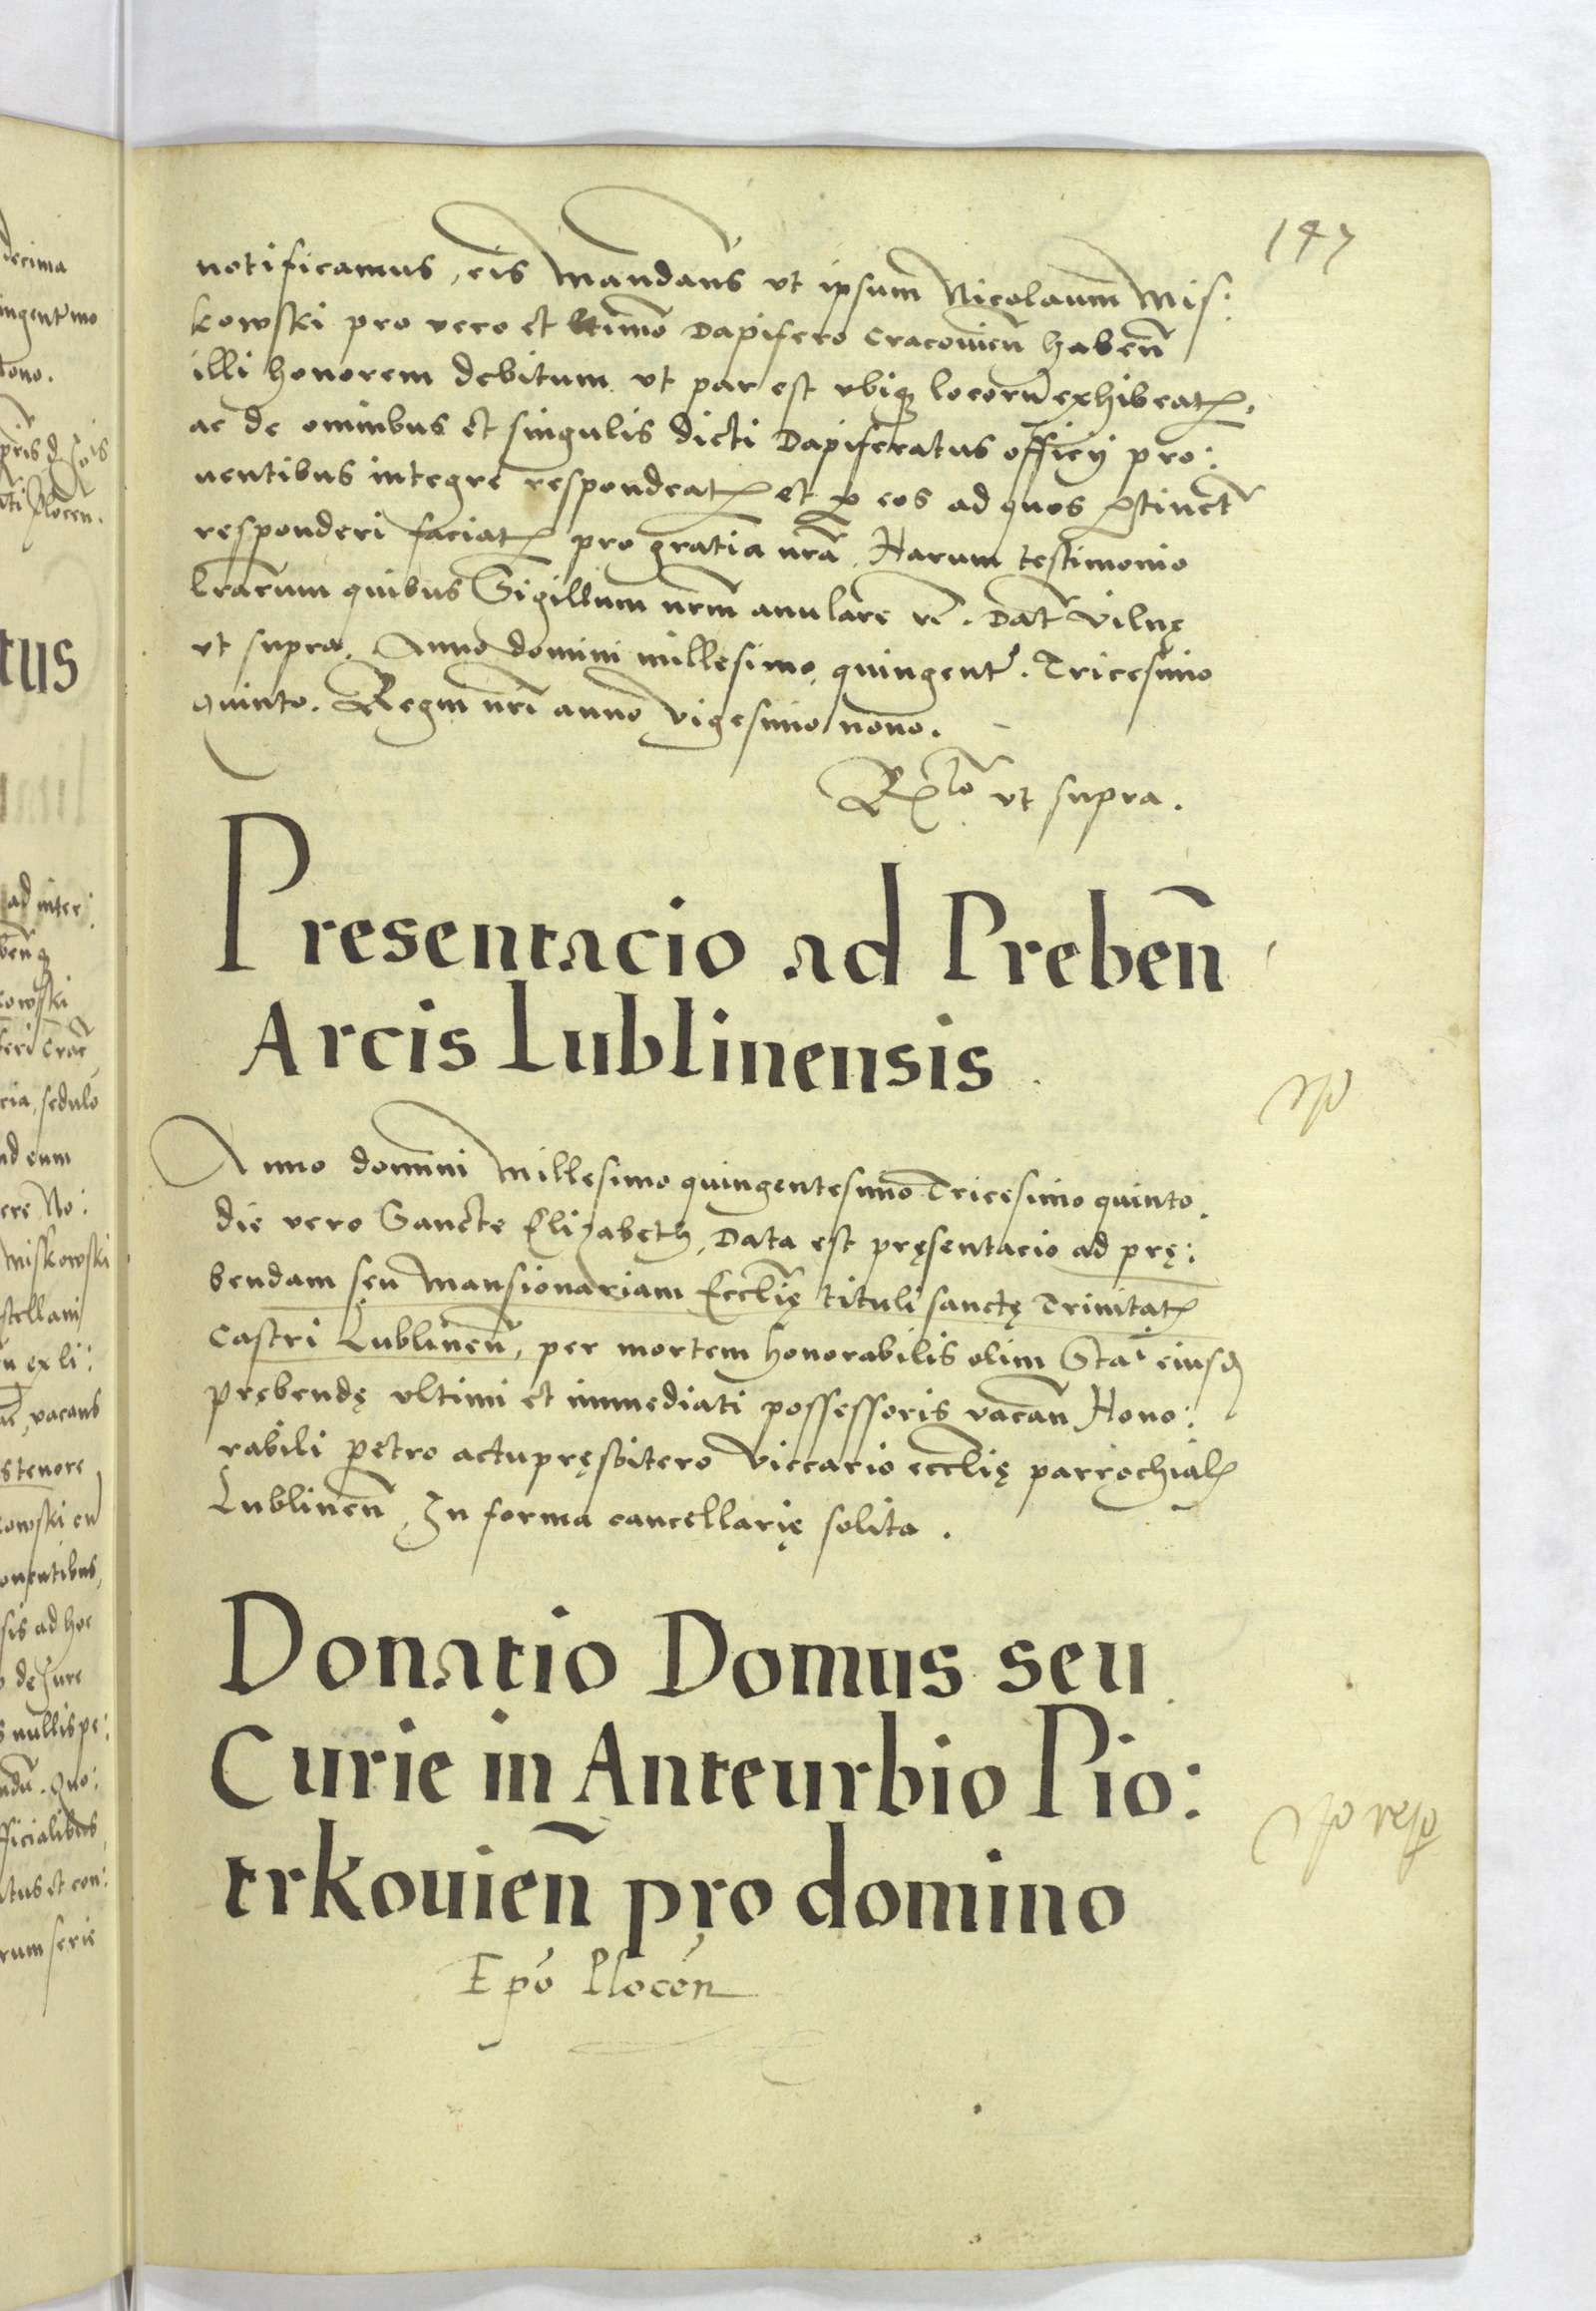 147
notificamus, eis mandans ut ipsum Nicolaum Mis:
kowski pro vero et ltimo Dapifero Cracovien haben
illi honorem debitum ut par est ubiq locoru exhibeat,
ac de omnibus et singulis dicti Dapiferatus officij pro:
uentibus integre respondeat et p eos ad quos ptinet
responderi faciat pro gratia nra. Harum testimonio
lrarum quibus Sigillum nrm anulare. Dat Vilnę
ut supra. Anno domini millesimo quingent. Tricesimo
quinto. Regni nri anno vigesimo nono.
Rlo ut supra.
Presentacio ad Preben
Arcis Lublinensis.
Anno domini Millesimo quingentesimo Tricesimo quinto.
die vero Sancte Elizabeth, Data est pręsentacio ad prę:
bendam sęu mansionariam Ecclię tituli sanctę Trinitat
Castri Lublinen, per mortem honorabilis olim Stai eiusd
prębendę ultimi et immediati possessoris vacan Hono:
rabili petro actupręsbitero viccario ecclię parrochial
Lublinen, In forma cancellarię solita.
Donatio Domus seu
Curie in Anteurbio Pio:
trkouien pro domino
Epo Plocen